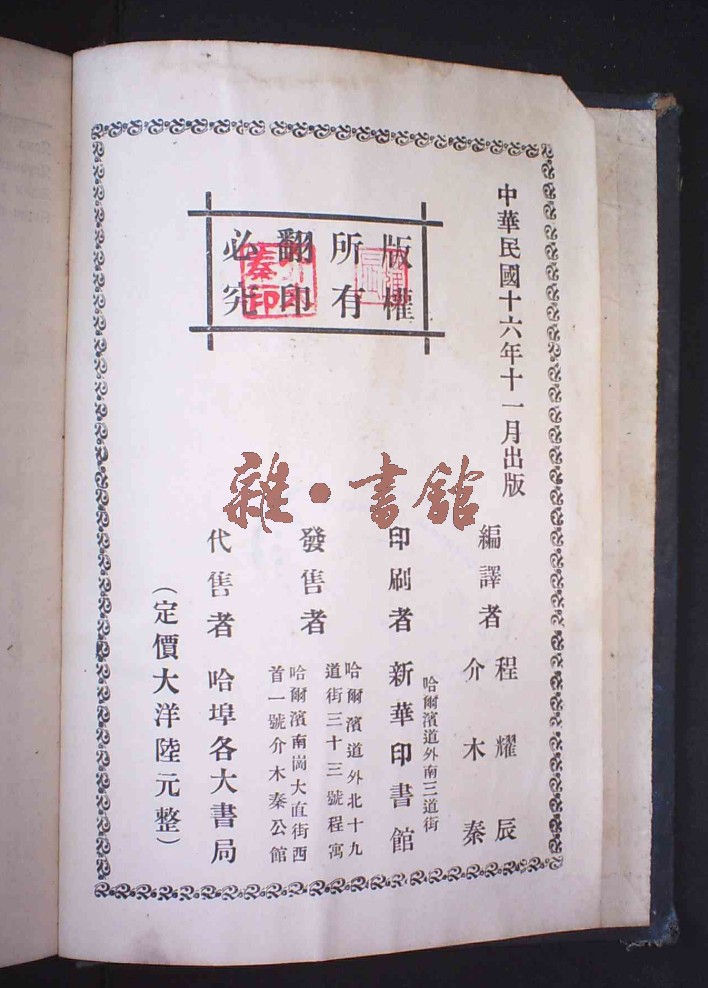 中華民國十六年十一月出版
版權
所有
翻印
必究
編譯者
程耀辰
介木秦
印刷者
哈爾濱道外南三道街
新華印書館
發售者
哈爾濱道外北十九
道街三十三號程寓
哈爾濱南崗大直街西
首一號介木秦公館
代售者 哈埠各大書局
（定價大洋陸元整）
雜·書館
秦印